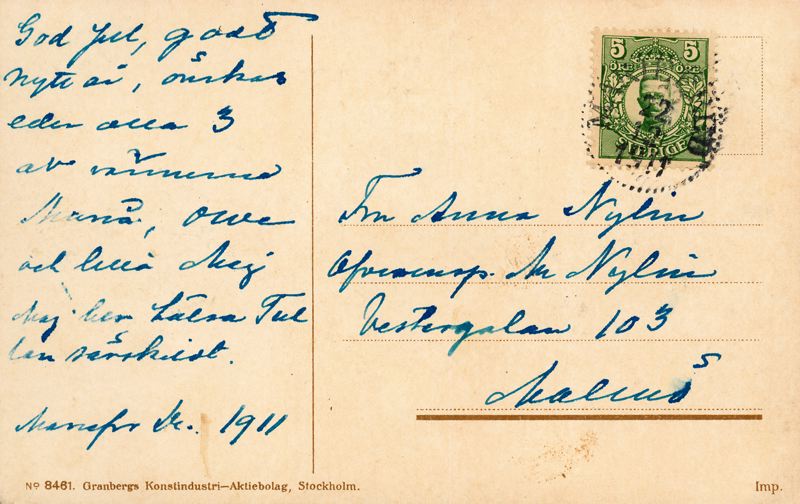 God Jul, godt
nytt år, önskas
eder alla 3
av vännerna
Maria, Owe
och lilla Maj
Maj ber hälsa Tul
lan särskildt.
1911
5 5
ÖRE ÖRE
SVERIGE
22
12
1911
Fru Anna Nylin
M Nylin
Vestergatan 103
Malmö
No 8461. Granbergs Konstindustri-Aktiebolag, Stockholm.
Imp.